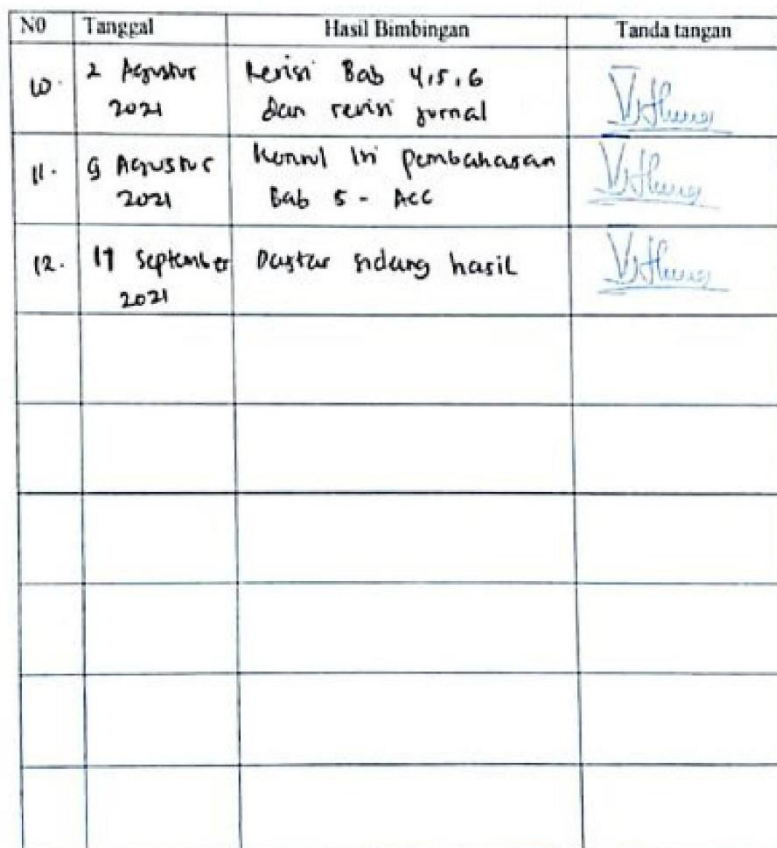 N0 Tanggal Hasil Bimbingan Tanda tangan
10. 2 Agustus Revisi Bab 4,5,6
2021 dan revisi jurnal
11. 9 Agustus Konsul Isi pembahasan
2021 Bab 5 - ACC
12. September Daftar sidang hasil
2021